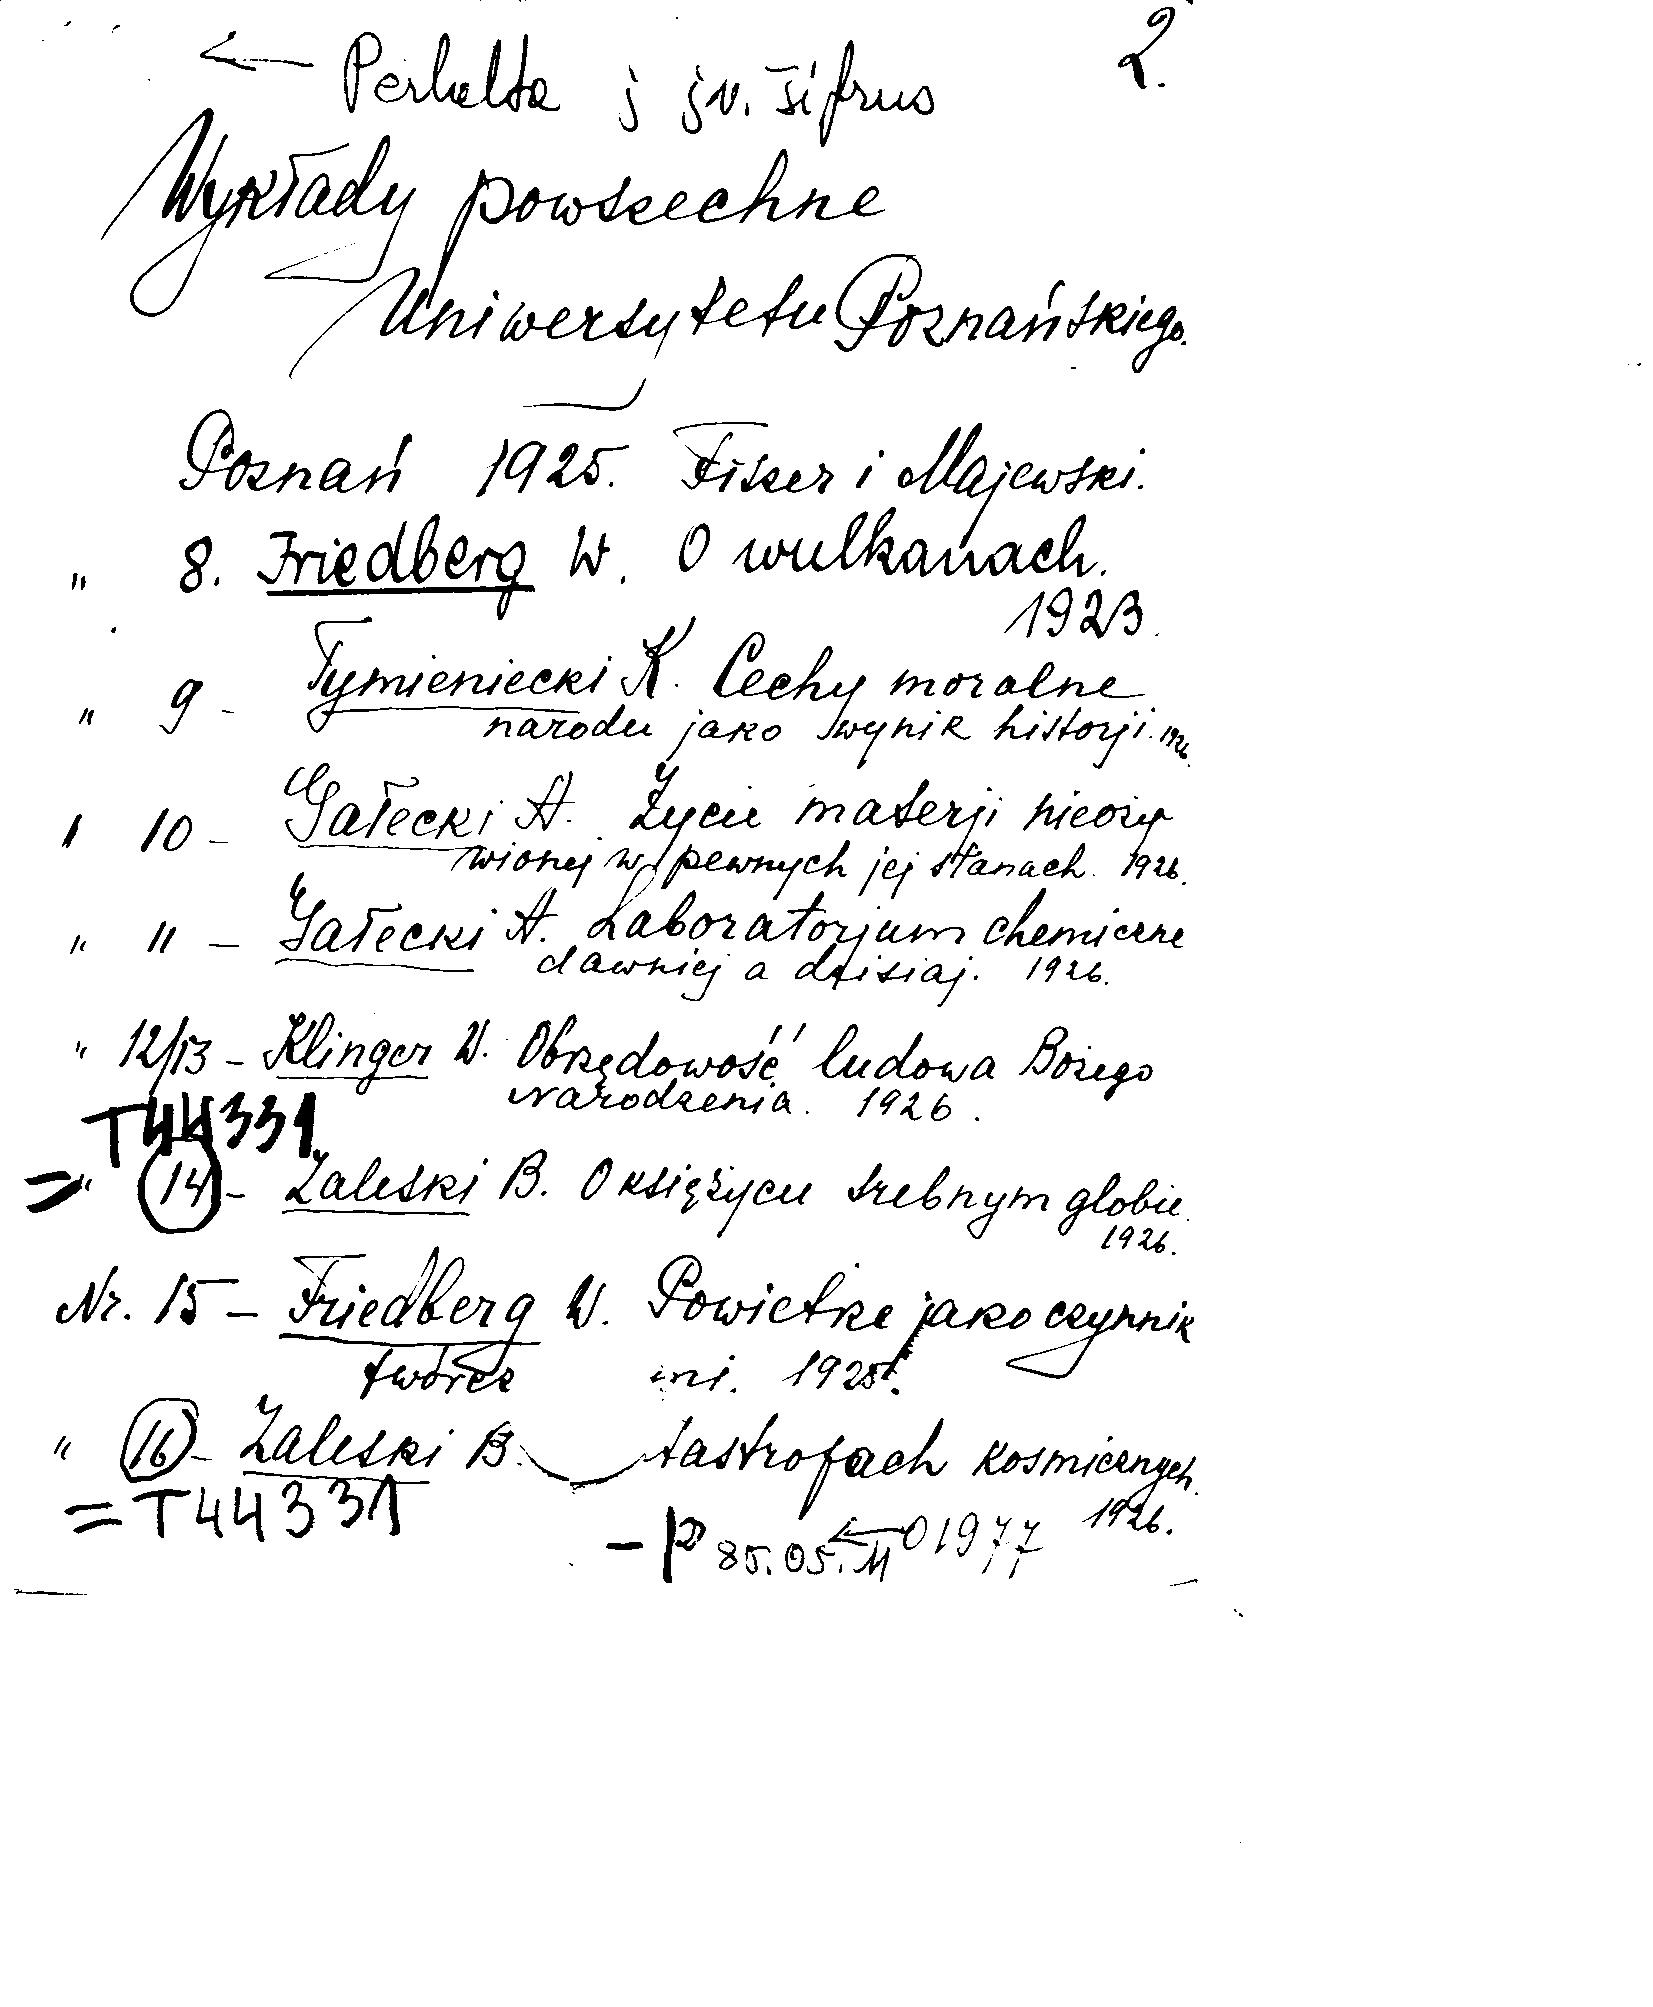 ← Perkelta į jv. šifrus 2.
Wykłady powszechne
Uniwersytetu Poznańskiego.
Poznań 1925. Fiszer i Majewski.
" 8. Friedberg W. O wulkanach.
1923.
" 9 - Tymieniecki K. Cechy moralne
narodu jako wynik historji. 1926.
" 10 - Gałecki A. Życie materji nieoży
wionej w pewnych jej stanach. 1926.
" 11 - Gałecki A. Laboratorjum chemiczne
dawniej a dzisiaj. 1926.
" 12/13 - Klinger W. Obrzędowość ludowa Bożego
Narodzenia. 1926.
T44331
= " 14 - Zaleski B. O księżycu srebnym globie.
1926.
Nr. 15 - Friedberg W. Powietrze jako czynnik
twórcz mi. 1925.
" 16 - Zaleski B. tastrofach kosmicznych.
1926.
= T44331
- P 85.05.11 ← 01977